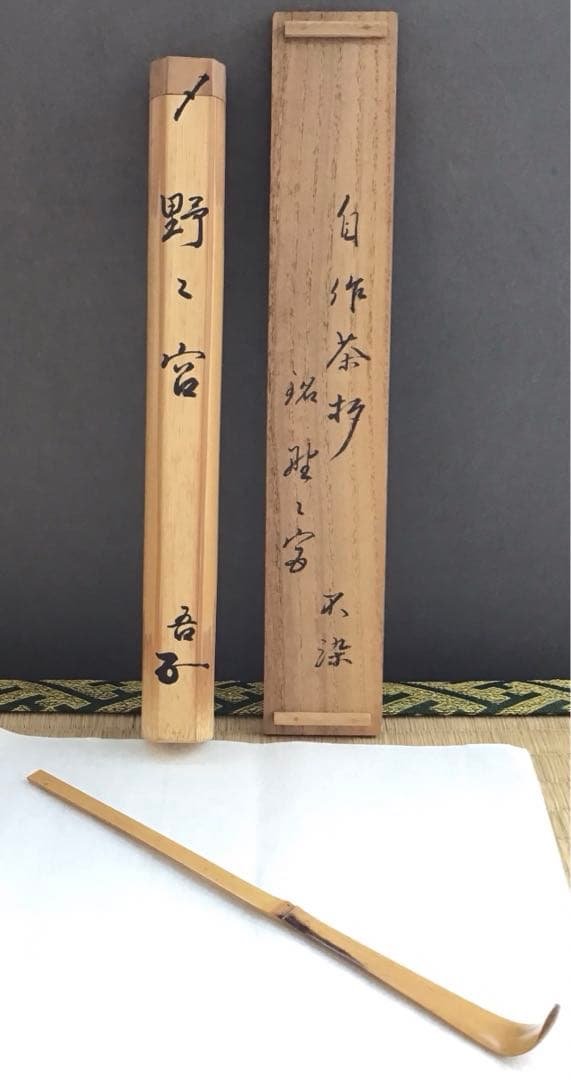 〆
野〻宮
吾
自作茶杓
銘 野〻宮
不染